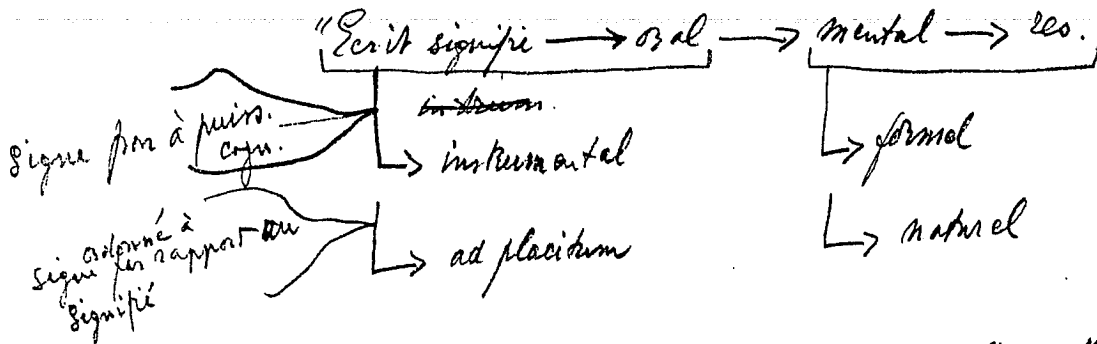 "Ecrit signifie → oral → mental → res.
instrum.
signe par à puiss.
cogn.
→ instrumental
→ formel
ordonné à
signe par rapport au
signifié
→ ad placitum
→ naturel